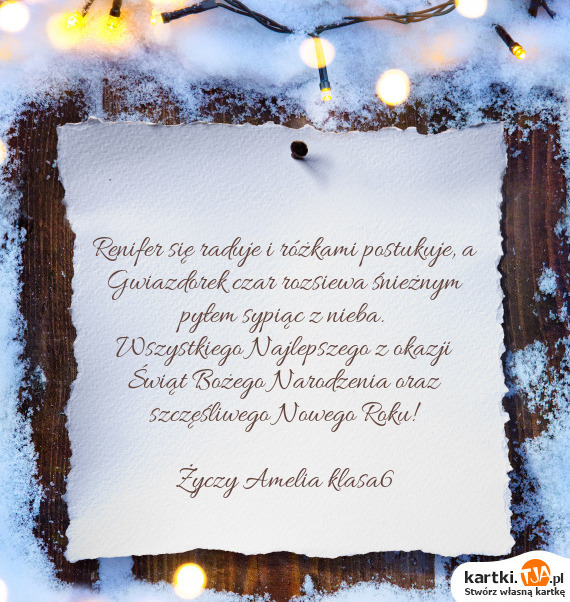 Renifer się raduje i różkami postukuje, a
Gwiazdorek czar rozsiewa śnieżnym
pyłem sypiąc z nieba.
Wszystkiego Najlepszego z okazji
Świąt Bożego Narodzenia oraz
szczęśliwego Nowego Roku!
Życzy Amelia klasa6
kartki.TJA.pl
Stwórz własną kartkę